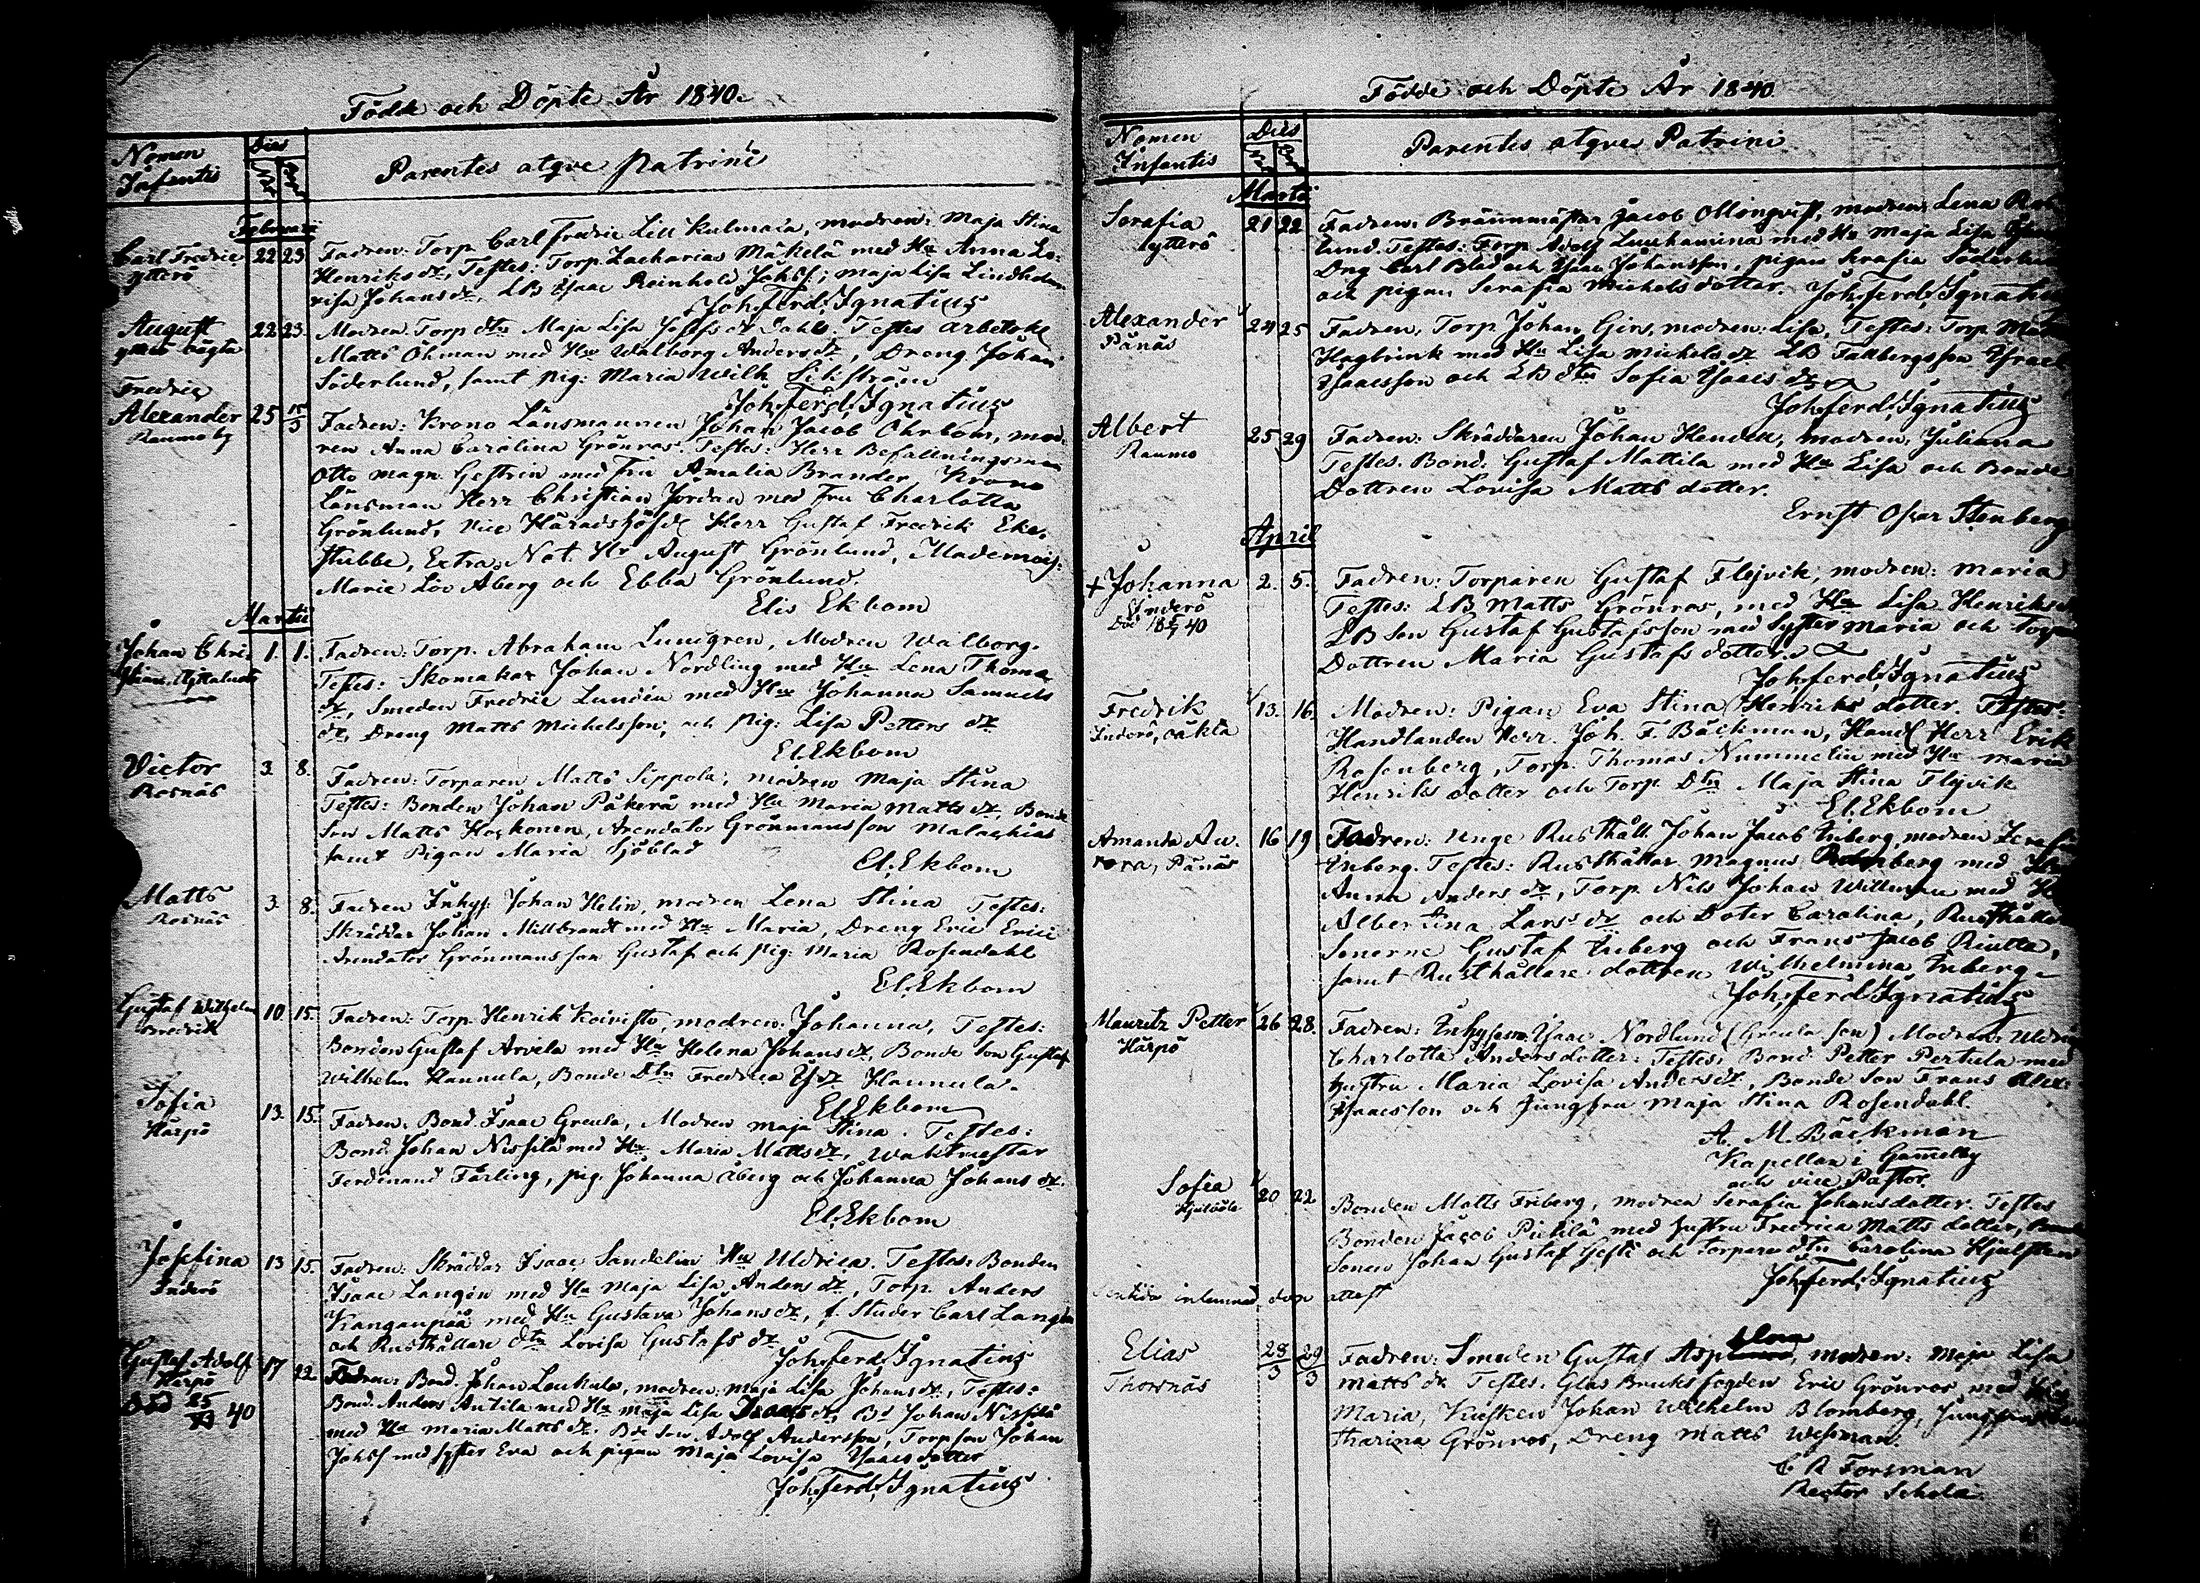 Födde och Döpte År 1840.
Nomen Infantis
Dies
Parentes atqve Patrini
Februarii
Carl Fredric
ytterö
22 23
Fadren: Torp. Carl Fredric Lill Kulmala, modren: Maja Stina
Henriks dr, Testes: Torp. Zacharias Mäkelä med Hu Anna Lo-
visa Johans dr, LB Isaac Reinhold Johlsf; Maja Lisa Lindholm
Joh. Ferd. Ignatius
August
22 23
Modren Torp. dtn Maja Lisa Josefs dr Dahls. Testes Arbetsk.
Matts Öhman med Hu Walborg Anders dr, Dreng Johan
Söderlund, samt pig: Maria Wilh. Sikström
Joh. Ferd. Ignatius
Fredric
Alexander
Raumo by
25
Fadren: Krono Länsmannen Johan Jacob Öhrbom, mod-
ren Anna Carolina Grönros. Testes: Herr Befallningsman
Otto Magn. Gestrin med Fru Amalia Brander Krono
Länsman Herr Christian Jordan med Fru Charlotta
Grönlund, Vice Häradshöfd. Herr Gustaf Fredrik Eke-
stubbe, Extra Not. Hr August Grönlund, Mademois:
Marie Lov. Åberg och Ebba Grönlund.
Elis Ekbom
Martii
Johan Chri-
1. 1.
Fadren: Torp. Abraham Lundgren, Modren Walborg.
Testes: Skomakar Johan Nordling med Hu Lena Thomas
dr, Smeden Fredric Lundén med Hu Johanna Samuels
dr, Dreng Matts Michelsson, och Pig: Lisa Petters dr
El. Ekbom
Victor
Rosnäs
3. 8.
Fadren: Torparen Matts Sippola, modren Maja Stina
Testes: Bonden Johan Påkerä med Hu Maria Matts dr, Bonde
son Matts Koskonen, Arendator Grönmans son Malachias
samt Pigan Maria Sjöblad
El. Ekbom
Matts
Rosnäs
3. 8.
Fadren Inhys: Johan Helin, modren Lena Stina Testes:
Skräddar Johan Millbrandt med Hu Maria, Dreng Eric Erici
Arendator Grönmans son Gustaf och pig: Maria Rosendahl
El. Ekbom
Gustaf Wilhelm
Bredvik
10 15.
Fadren: Torp. Henrik Koivisto, modren: Johanna, Testes:
Bonden Gustaf Arvela med Hu Helena Johans dr, Bonde Son Gustaf
Wilhelm Hannula, Bonde Dtn Fredrica Is dr Hannula.
El. Ekbom
Sofia
Härpö
13. 15.
Fadren: Bond. Isaac Greula, Modren Maja Stina. Testes:
Bond. Johan Nissilä med Hu Maria Matts dr, Waktmestar
Ferdinand Färling, pig. Johanna Åberg och Johanna Johans dr.
El. Ekbom
Josefina
Inderö
13 15.
Fadren: Skräddar Isaac Sandelin Hu Uldrica. Testes: Bonden
Isaac Langén med Hu Maja Lisa Anders dr, Torp. Anders
Kangaspää med Hu Gustava Johans dr, f. Studer Carl Langén
och Rusthållare dtn Lovisa Gustafs dr
Joh. Ferd. Ignatius
Gustaf Adolf
Härpö
17 22.
Fadren: Bond. Johan Loukula, modren: Maja Lisa Johans dr, Testes:
Bond. Anders Antila med Hu Maja Lisa Isaacs dr, Bd Johan Nissilä
med Hu Maria Matts dr. Bde son Adolf Andersson, Torp son Johan
Johlsf med syster Eva och pigan Maja Lovisa Isaacs dotter
Joh. Ferd. Ignatius
Födde och Döpte År 1840.
Nomen Infantis
Dies
Parentes atqve Patrini
Martii
Serafia
Lytterö
21 22
Fadren: Brännmästar Jacob Ollonqvist, modren Lena
lund. Testes: Torp. Adolf Luukanina med Hu Maja Lisa
Dng Carl Blad och Isaac Johansson, pigan Serafia
och pigan Serafia Michelsdotter. Joh. Ferd. Ignatius
Alexander
Pånäs
24 25
Fadren: Torp. Johan Girs, modren: Lisa, Testes: Torp.
Hagbrink med Hu Lisa Michels dr LB Fallbergs son Israel
Isaacsson och LB dtn Sofia Isaacs dr
Joh. Ferd. Ignatius
Albert
Raumo
25 29
Fadren: Skräddaren Johan Hendell, modren: Juliana
Testes. Bond. Gustaf Mattila med Hu Lisa och Bonde
Dottren Lovisa Matts dotter.
Ernst Oscar Stenberg
April
+ Johanna
Inderö
2. 5.
Fadren: Torparen Gustaf Flejvik, modren: Maria
Testes: LB Matts Grönros, med Hu Lisa Henriks
LB Son Gustaf Gustafsson med syster Maria och torpare
Dottren Maria Gustafs dotter.
Joh. Ferd. Ignatius
Fredrik
Inderö, oäkta
13. 16.
Modren: Pigan Eva Stina Henriks dotter. Testes:
Handlanden Herr Joh. F. Bäckman, Handl. Herr Erik
Rosenberg, Torp. Thomas Nummelin med Hu Maria
Henriks dotter och Torp. Dtn Maja Stina Flejvik
El. Ekbom
Amanda Au-
rora, Pånäs
16 19
Fadren: Unge Rusthåll. Johan Jacob Enberg, modren
Enberg. Testes: Rusthållar Magnus med
Anna Anders dr, Torp. Nils Johan Willman med
Albertina Lars dr och Doter Carolina, Rusthållare
Sonerne Gustaf Enberg och Frans Jacob Riutta,
samt Rusthållare dottren Wilhelmina Enberg
Joh. Ferd. Ignatius
Mauritz Petter
Härpö
26 28.
Fadren: Inhyses. Isaac Nordlund (Greula son) Modren: Uldrica
Charlotta Andersdotter: Testes: Bond. Petter Pertula med
hustru Maria Lovisa Anders dr, Bonde Son Frans Alex:
Isaacsson och Jungfru Maja Stina Rosendahl.
A. M. Bäckman
Kapellan i Gamelby
och vice Pastor.
Sofia
20 22
Bonden Matts Friberg, modren Serafia Johansdotter. Testes
Bonden Jacob Pihlä med hustru Fredrica Matts dotter,
Sonen Johan Gustaf och Torpare dtn Carolina
Joh. Ferd. Ignatius
inlemnad dop attest
Elias
Thorsnäs
28/3 29/3
Fadren: Smeden Gustaf Asp, modren: Maja Lisa
Matts dr Testes. Glas Bruks fogden Eric Grönros, med
Maria, Kusken Johan Wilhelm Blomberg,
tharina Grönros, Dreng Matts Wesman.
C. R. Forsman
Rector Schola